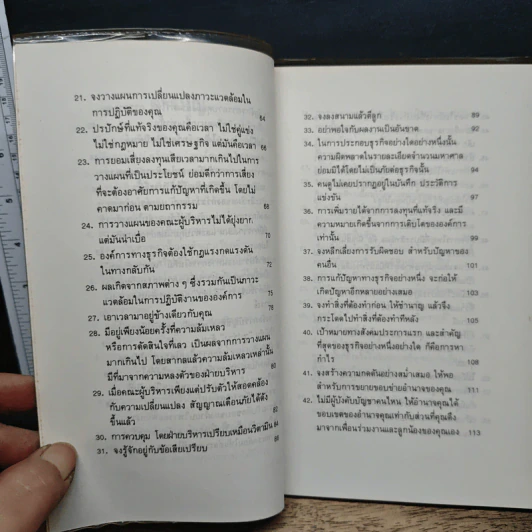 21. จงวางแผนการเปลี่ยนแปลงภาวะแวดล้อมใน
การปฏิบัติของคุณ 64
22. ปรปักษ์ที่แท้จริงของคุณคือเวลา ไม่ใช่คู่แข่ง
ไม่ใช่กฎหมาย ไม่ใช่เศรษฐกิจ แต่มันคือเวลา 65
23. การยอมเสี่ยงลงทุนเสียเวลามากเกินไปในการ
วางแผนที่เป็นประโยชน์ ย่อมดีกว่าการเสี่ยง
ที่จะต้องอาศัยการแก้ปัญหาที่เกิดขึ้น โดยไม่
คาดมาก่อน ตามยถากรรม 68
24. การวางแผนของคณะผู้บริหารไม่ได้ยุ่งยาก
แต่มันน่าเบื่อ 70
25. องค์การทางธุรกิจต้องใช้กฎแรงกดแรงดัน
ในทางกลับกัน 72
26. ผลเกิดจากสภาพต่าง ๆ ซึ่งรวมกันเป็นภาวะ
แวดล้อมในการปฏิบัติงานขององค์การ 75
27. เอาเวลามาอยู่ข้างเดียวกับคุณ 78
28. มีอยู่เพียงน้อยครั้งที่ความล้มเหลว
หรือการตัดสินใจที่เลว เป็นผลจากการวางแผน
มากเกินไป โดยสากลแล้วความล้มเหลวเหล่านั้น
มีที่มาจากความหลงตัวของฝ่ายบริหาร
29. เมื่อคณะผู้บริหารเพียงแต่ปรับตัวให้สอดคล้อง
กับความเปลี่ยนแปลง สัญญาณเตือนภัยได้ดัง
ขึ้นแล้ว
30. การควบคุม โดยฝ่ายบริหารเปรียบเหมือนวิตามิน
31. จงรู้จักอยู่กับข้อเสียเปรียบ
32. จงลงสนามแล้วตีลูก 89
33. อย่าพอใจกับผลงานเป็นอันขาด 92
34. ในการประกอบธุรกิจอย่างใดอย่างหนึ่งนั้น
ความผิดพลาดในรายละเอียดจำนวนมหาศาล
ย่อมมีได้โดยไม่เป็นภัยต่อธุรกิจนั้น
35. คนดูไม่เคยปรากฏอยู่ในบันทึก ประวัติการ
แข่งขัน 97
36. การเพิ่มรายได้จากการลงทุนที่แท้จริง และมี
ความหมายเกิดขึ้นจากการเติบโตขององค์การ
เท่านั้น 99
37. จงหลีกเลี่ยงการรับผิดชอบ สำหรับปัญหาของ
คนอื่น 101
38. การแก้ปัญหาทางธุรกิจอย่างหนึ่ง จะก่อให้
เกิดปัญหาอีกหลายอย่างเสมอ 103
39. จงทำสิ่งที่ต้องทำก่อน ให้ชำนาญ แล้วจึง
กระโดดไปทำสิ่งที่ต้องทำทีหลัง
40. เป้าหมายทางสังคมประการแรก และสำคัญ
ที่สุดของธุรกิจอย่างหนึ่งอย่างใด ก็คือการหา
กำไร 108
41. จงสร้างความกดดันอย่างสม่ำเสมอ ให้พอ
สำหรับการขยายขอบข่ายอำนาจของคุณ
42. ไม่มีผู้บังคับบัญชาคนไหน ให้อำนาจคุณได้
ขอบเขตของอำนาจคุณเท่ากับส่วนที่คุณดึง
มาจากเพื่อนร่วมงานและลูกน้องของคุณเอง
113